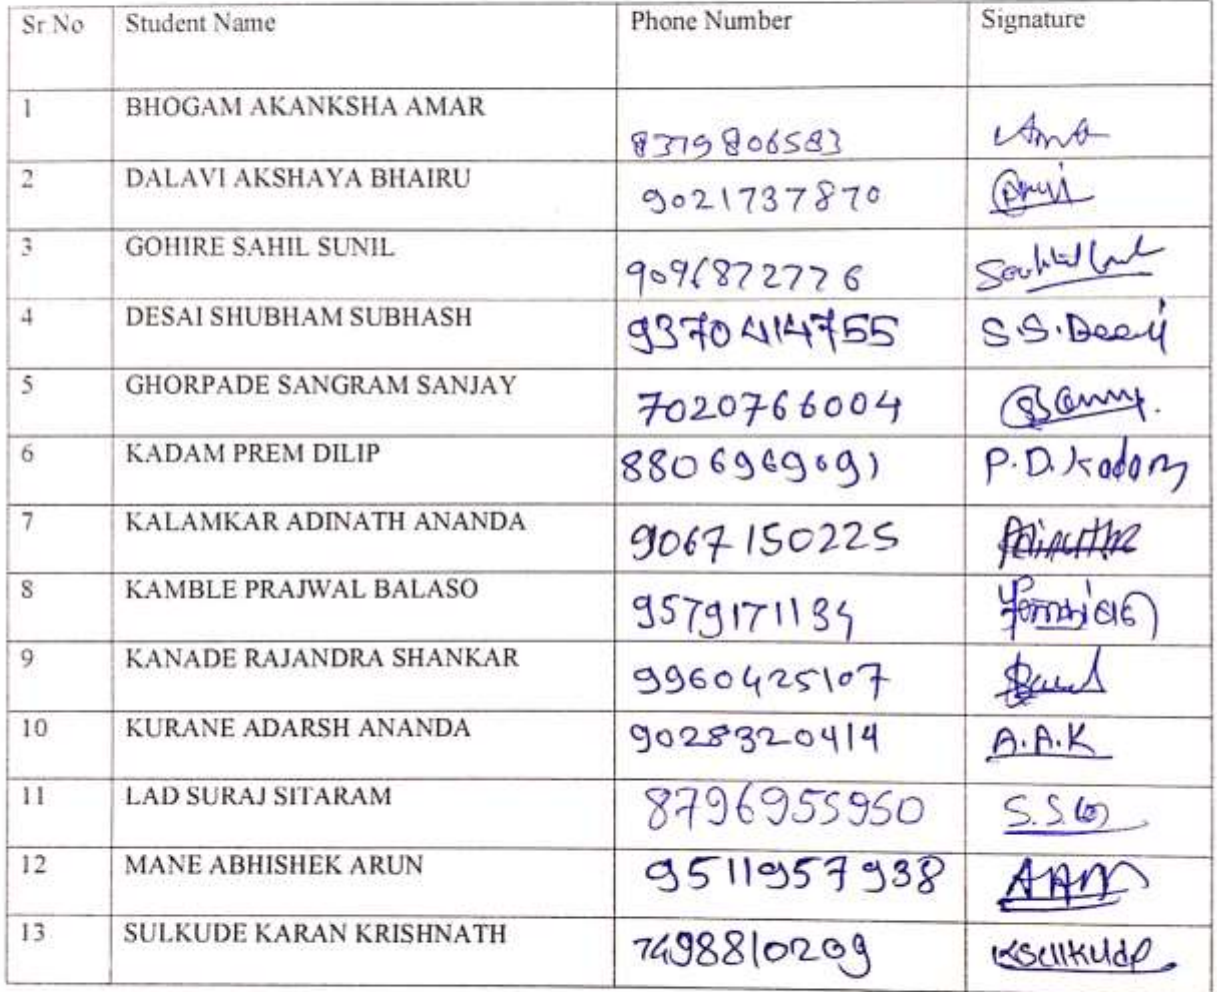 Sr.No Student Name Phone Number Signature
1 BHOGAM AKANKSHA AMAR 8379806583
2 DALAVI AKSHAYA BHAIRU 9021737870
3 GOHIRE SAHIL SUNIL 9096872776
4 DESAI SHUBHAM SUBHASH 9370414755 S.S.Desai
5 GHORPADE SANGRAM SANJAY 7020766004
6 KADAM PREM DILIP 8806969691 P.D.Kadam
7 KALAMKAR ADINATH ANANDA 9067150225
8 KAMBLE PRAJWAL BALASO 9579171134
9 KANADE RAJANDRA SHANKAR 9960425107
10 KURANE ADARSH ANANDA 9028320414 A.A.K
11 LAD SURAJ SITARAM 8796955950
12 MANE ABHISHEK ARUN 9511957938 AAM
13 SULKUDE KARAN KRISHNATH 7498810209